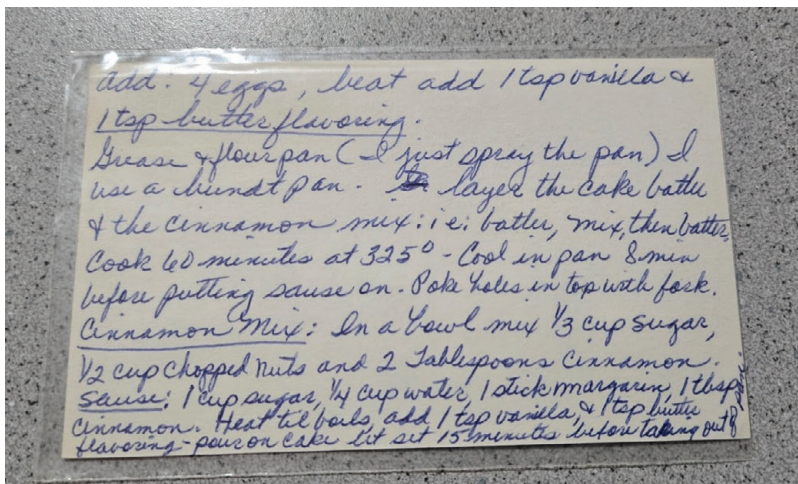 add. 4 eggs, beat add 1 tsp vanilla &
1 tsp butter flavoring.
Grease & flour pan (I just spray the pan) I
use a bundt pan. layer the cake batter
& the cinnamon mix: i e: batter, mix, then batter.
Cook 60 minutes at 325° - Cool in pan 8 min
before putting sause on. Poke holes in top with fork.
Cinnamon Mix: In a bowl mix 1/3 cup sugar,
1/2 cup chopped nuts and 2 Tablespoons Cinnamon.
Sause: 1 cup sugar, 1/4 cup water, 1 stick margarin, 1 tbsp
cinnamon. Heat til boils, add 1 tsp vanilla, & 1 tsp butter
flavoring - pour on cake let set 15 minutes before taking out of
pan.